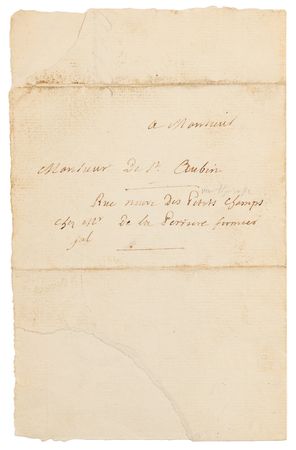 a Monsieur
Monsieur De St. Aubin
Rue neuve Des Petits Champs
chez Mr De la Perriere fermier
gal